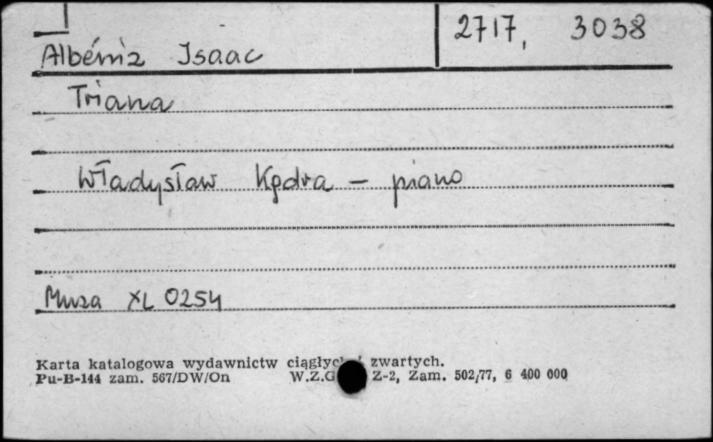 2717, 3038
Albéniz Isaac
Triana
Władysław Kędra - piano
Muza XL 0254
Karta katalogowa wydawnictw ciągłych i zwartych.
Pu-B-144 zam. 567/DW/On W.Z.G Z-2, Zam. 502/77, 6 400 000